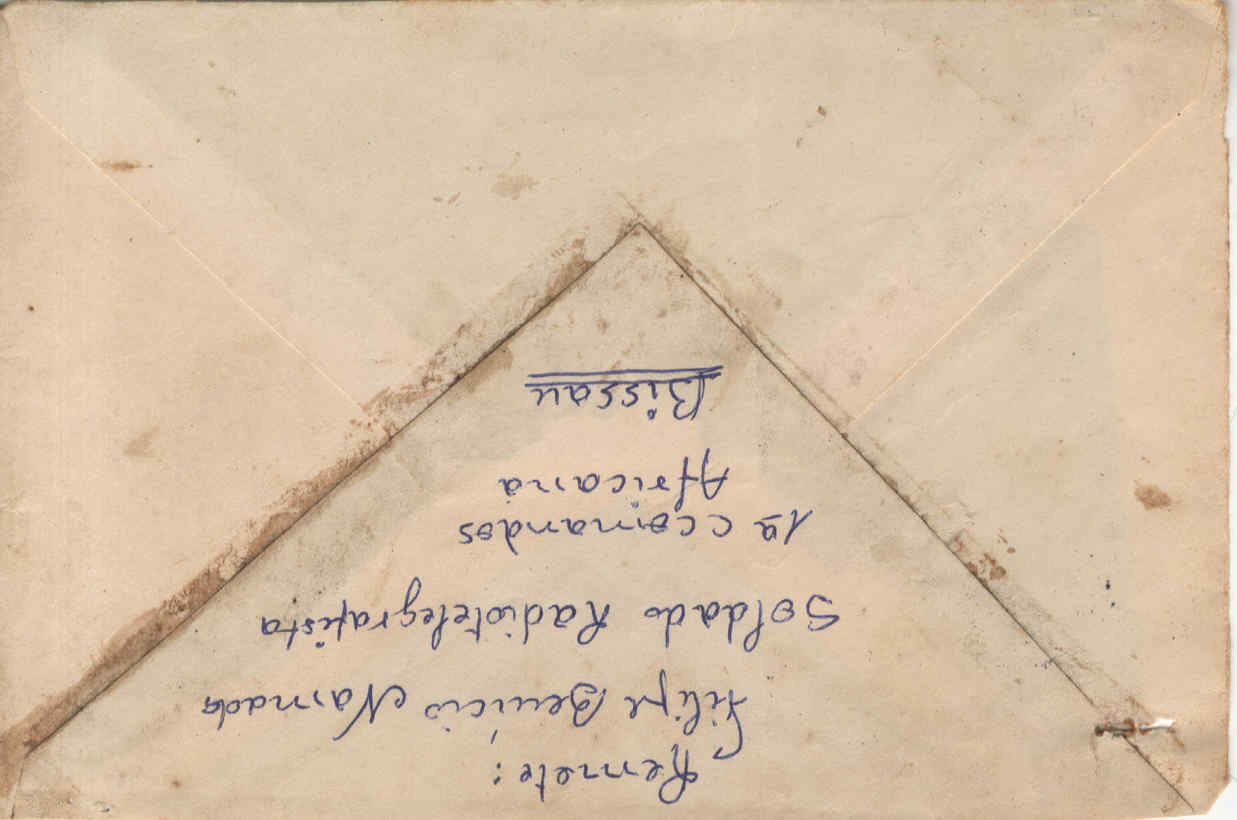 Remete:
Filipe Benício Namada
Soldado Radiotelegrafista
1ª ccomandos
Africana
Bissau